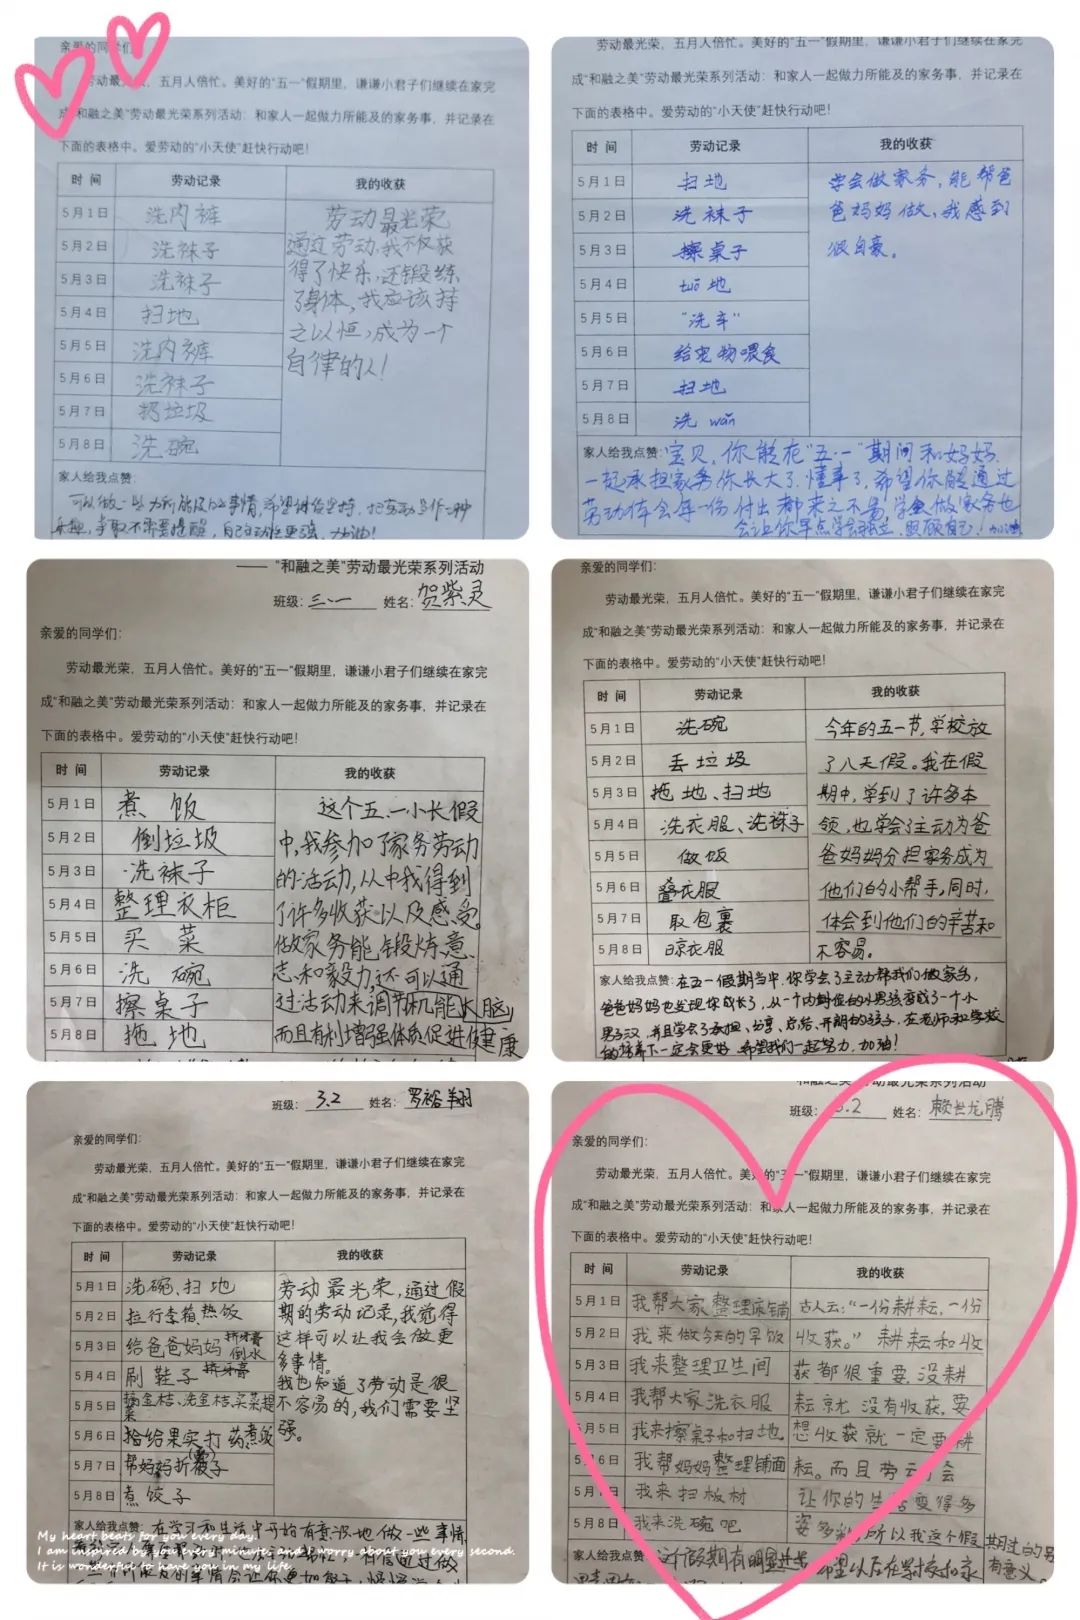 亲爱的同学们
劳动最光荣，五月人倍忙。美好的“五一”假期里，谦谦小君子们继续在家完
成“和融之美”劳动最光荣系列活动：和家人一起做力所能及的家务事，并记录在
下面的表格中。爱劳动的“小天使”赶快行动吧！
时 间 劳动记录 我的收获
5月1日 洗内裤 劳动最光荣
5月2日 洗袜子 通过劳动,我不仅获
5月3日 洗袜子 得了快乐,还锻练
5月4日 扫地 了身体，我应该持
5月5日 洗内裤 之以恒,成为一个
5月6日 洗袜子 自律的人!
5月7日 扔垃圾
5月8日 洗碗
家人给我点赞:
劳动最光荣，五月人倍忙。美好的“五一”假期里，谦谦小君子们继续在家完
成“和融之美”劳动最光荣系列活动：和家人一起做力所能及的家务事，并记录在
下面的表格中。爱劳动的“小天使”赶快行动吧！
时 间 劳动记录 我的收获
5月1日 扫地 学会做家务，能帮爸
5月2日 洗袜子 爸妈妈做、我感到
5月3日 擦桌子 很自豪。
5月4日 tuō地
5月5日 “洗车”
5月6日 给宠物喂食
5月7日 扫地
5月8日 洗 wǎn
家人给我点赞:宝贝，你能在“五·一”期间和妈妈
一起承担家务你长大了,懂事了,希望你能通过
劳动体会每一份付出都来之不易,学会做家务也
会让你早点学会独立，照顾自己！加油
—— “和融之美”劳动最光荣系列活动
班级: 三.一 姓名: 贺紫灵
亲爱的同学们：
劳动最光荣，五月人倍忙。美好的“五一”假期里，谦谦小君子们继续在家完
成“和融之美”劳动最光荣系列活动：和家人一起做力所能及的家务事，并记录在
下面的表格中。爱劳动的“小天使”赶快行动吧！
时 间 劳动记录 我的收获
5月1日 煮 饭 这个五.一小长假
5月2日 倒垃圾 中,我参加了家务劳动
5月3日 洗袜子 的活动,从中我得到
5月4日 整理衣柜 了许多收获以及感受。
5月5日 买 菜 做家务能锻炼意
5月6日 洗 碗 志和毅力,还可以通
5月7日 擦桌子 过活动来调节机能大脑,
5月8日 拖 地 而且有利增强体质促进健康
亲爱的同学们：
劳动最光荣，五月人倍忙。美好的“五一”假期里，谦谦小君子们继续在家完
成“和融之美”劳动最光荣系列活动：和家人一起做力所能及的家务事，并记录在
下面的表格中。爱劳动的“小天使”赶快行动吧！
时 间 劳动记录 我的收获
5月1日 洗碗 今年的五一节,学校放
5月2日 丢垃圾 了八天假。我在假
5月3日 拖地、扫地 期中,学到了许多本
5月4日 洗衣服、洗袜子 领,也学会了主动为爸
5月5日 做饭 爸妈妈分担家务成为
5月6日 叠衣服 他们的小帮手,同时,
5月7日 取包裹 体会到他们的辛苦和
5月8日 晾衣服 不容易。
家人给我点赞:在五一假期当中,你学会了主动帮我们做家务,
爸爸妈妈也发现你成长了,从一个内向的小男孩变成了一个小
男子汉,并且学会了承担、分享、总结、开朗的孩子,在老师和学校
的培养下一定会更好,希望我们一起努力,加油!
班级: 3.2 姓名: 罗裕翔
亲爱的同学们：
劳动最光荣，五月人倍忙。美好的“五一”假期里，谦谦小君子们继续在家完
成“和融之美”劳动最光荣系列活动：和家人一起做力所能及的家务事，并记录在
下面的表格中。爱劳动的“小天使”赶快行动吧！
时 间 劳动记录 我的收获
5月1日 洗碗、扫地 劳动最光荣，通过假
5月2日 拉行李箱 热饭 期的劳动记录,我觉得
5月3日 给爸爸妈妈 挤牙膏 倒水 这样可以让我会做更
5月4日 刷鞋子 挤牙膏 多事情。
5月5日 摘金桔、洗金桔、买菜提菜 我也知道了劳动是很
5月6日 给果实打药 煮饭 不容易的,我们需要坚
5月7日 帮妈妈折被子 强。
5月8日 煮饺子
家人给我点赞:在学习和生活中开始有意识地做一些事情
My heart beats for you every day.
I am inspired by you every minute, and I worry about you every second.
It is wonderful to have you in my life.
和融之美”劳动最光荣系列活动
班级: 3.2 姓名: 赖世龙腾
亲爱的同学们：
劳动最光荣，五月人倍忙。美好的“五一”假期里，谦谦小君子们继续在家完
成“和融之美”劳动最光荣系列活动：和家人一起做力所能及的家务事，并记录在
下面的表格中。爱劳动的“小天使”赶快行动吧！
时 间 劳动记录 我的收获
5月1日 我帮大家整理床铺 古人云:“一份耕耘,一份
5月2日 我来做今天的早饭 收获。”耕耘和收
5月3日 我来整理卫生间 获都很重要,没耕
5月4日 我帮大家洗衣服 耘就没有收获,要
5月5日 我来擦桌子和扫地 想收获就一定要耕
5月6日 我帮妈妈整理铺面 耘。而且劳动会
5月7日 我来扫板材 让你的生活变得多
5月8日 我来洗碗吧 姿多彩,所以我这个假期过的另有意义
家人给我点赞:这个假期有明显进步